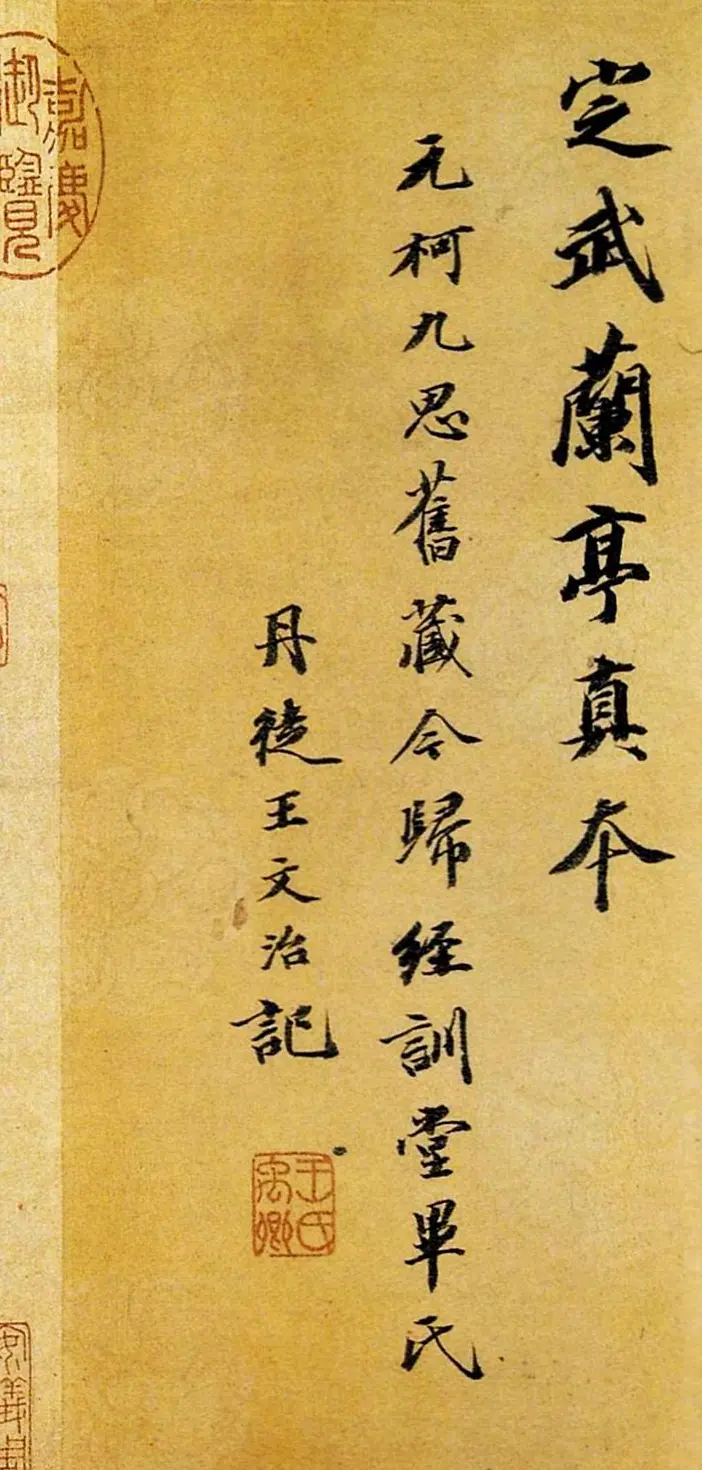 定武蘭亭真本
元柯九思舊藏今歸經訓堂畢氏
丹徒王文治記
王氏禹卿
嘉慶御覽